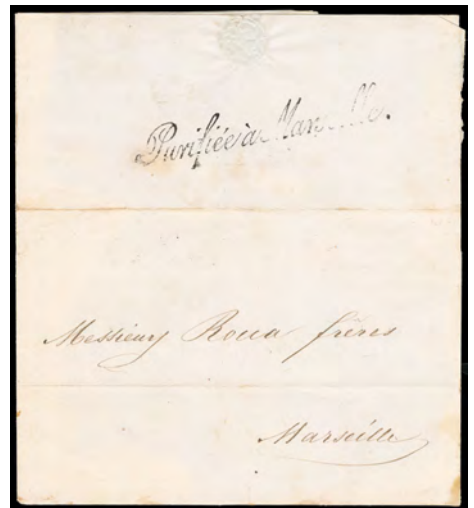 Purifiée à Marseille.
Messieurs Roux frères
Marseille